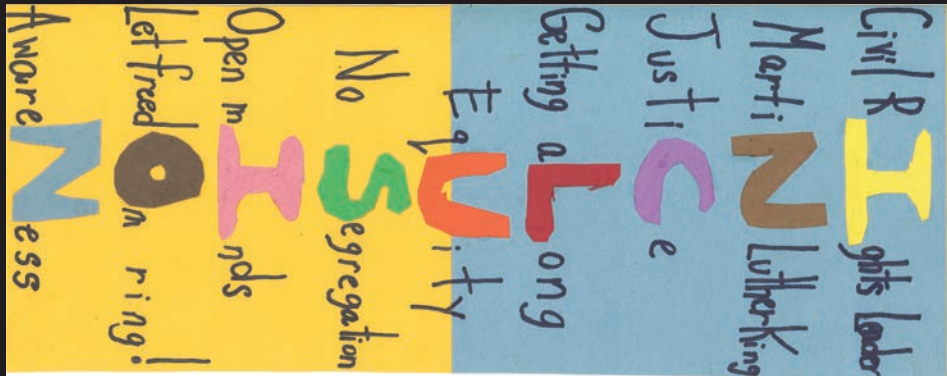 Civil RIghts Leader
MartiN Luther King
JustiCe
Getting aLong
EqUity
No Segregation
Open mInds
Let freedOm ring!
AwareNess